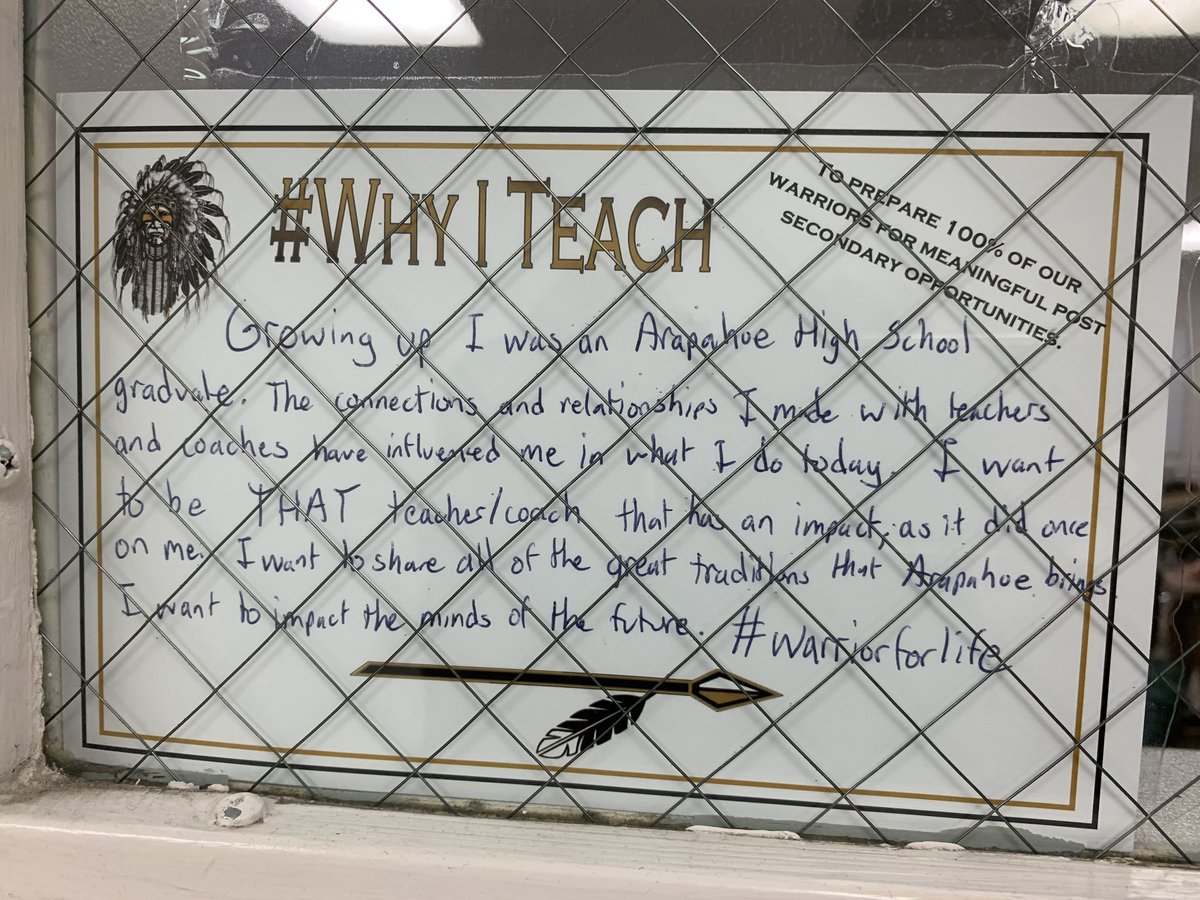 #WHY I TEACH
TO PREPARE 100% OF OUR
WARRIORS FOR MEANINGFUL POST
SECONDARY OPPORTUNITIES.
Growing up I was an Arapahoe High School
graduate. The connections and relationships I made with teachers
and coaches have influenced me in what I do today. I want
to be THAT teacher/coach that has an impact, as it did once
on me. I want to share all of the great traditions that Arapahoe brings.
I want to impact the minds of the future. #warriorforlife